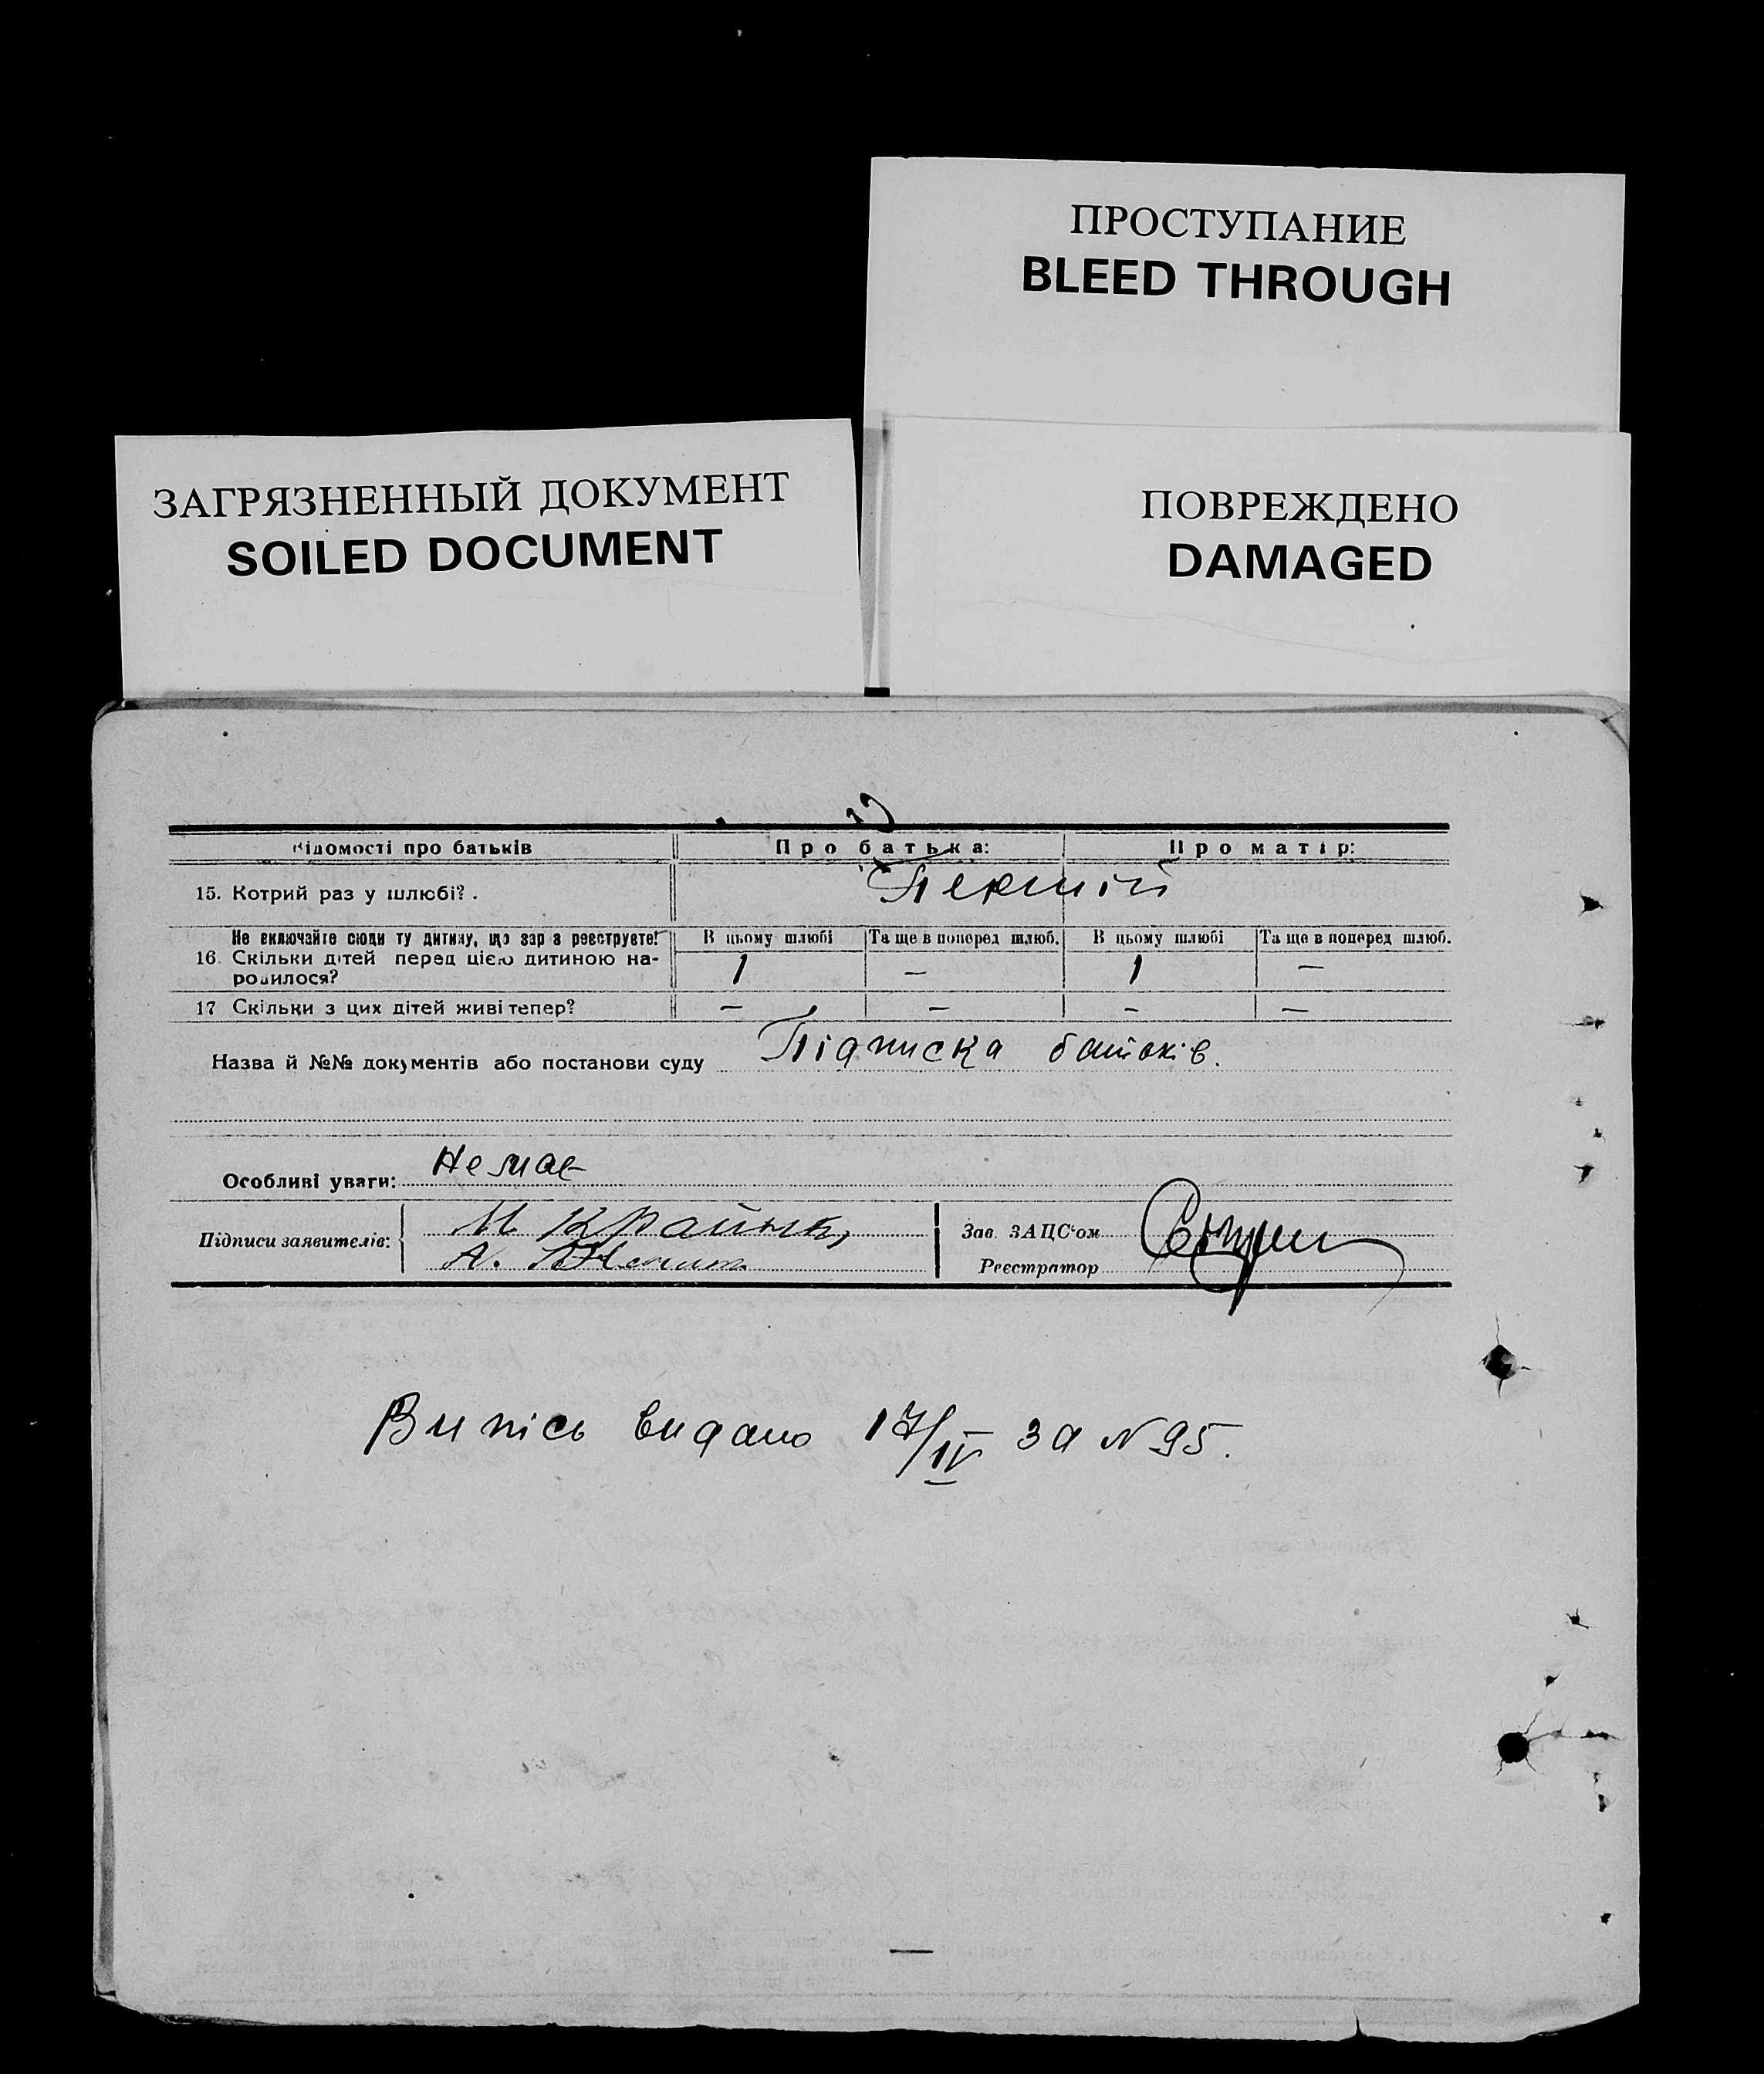 ПРОСТУПАНИЕ
BLEED THROUGH
ЗАГРЯЗНЕННЫЙ ДОКУМЕНТ
SOILED DOCUMENT
ПОВРЕЖДЕНО
DAMAGED
Відомості про батьків Про батька: Про матір:
15. Котрий раз у шлюбі?. Перший
Не включайте сюди ту дитину, що зараз реєструєте! В цьому шлюбі Та ще в поперед шлюб. В цьому шлюбі Та ще в поперед шлюб.
16. Скільки дітей перед цією дитиною на-
родилося? 1 — 1 —
17 Скільки з цих дітей живі тепер? — — — —
Назва й №№ документів або постанови суду Підписка батьків.
Особливі уваги: Немає
Підписи заявителів: М
Н.
Зав. ЗАЦС'ом
Реєстратор
Випісь видано 17/IV за N 95.